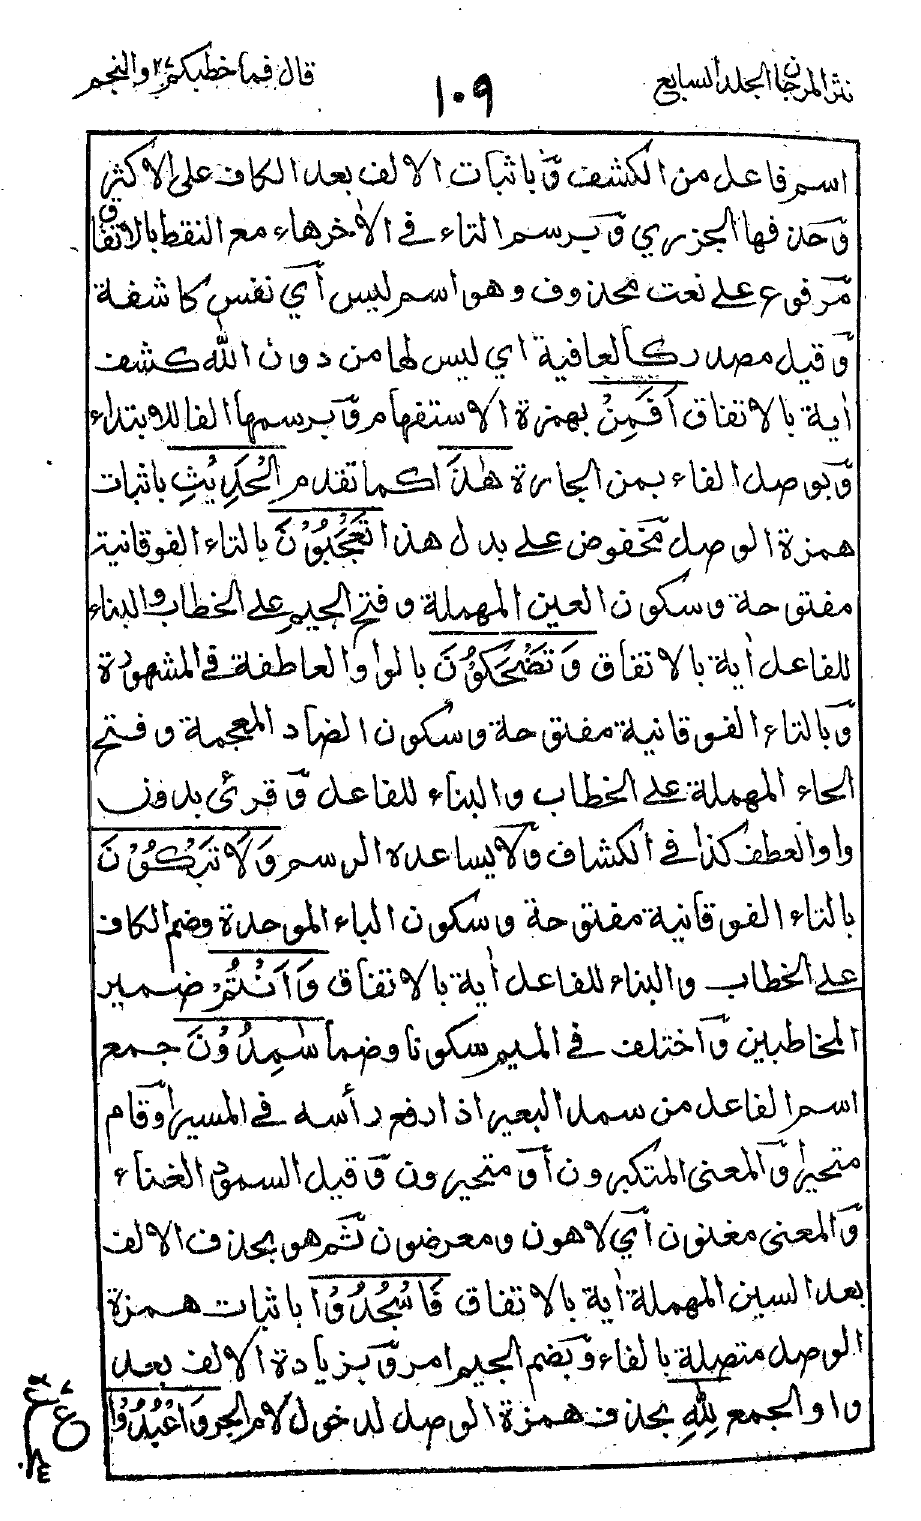 نثر المرجان الجلد السابع
١٠٩
قال فما خطبكم ٢٧ والنجم
اسم فاعل من الكشف وَباثبات الالف بعد الكاف على الاكثر
وَحذفها الجزري وَبرسم التاء في الاٰخر هاء مع النقط بالاتفاق
مرفوع على نعت محذوف وهو اسم ليس أي نفس كاشفة
وَقيل مصدر كالعافية اي ليس لها من دون اللّٰه كشف
اٰية بالاتفاق اَفَمِنْ بهمزة الاستفهام وَبرسمها الفا للابتداء
وَبوصل الفاء بمن الجارة هٰذَا كما تقدم الْحَدِيْثِ باثبات
همزة الوصل مخفوض على بدل هذا تَعْجَبُوْنَ بالتاء الفوقانية
مفتوحة وسكون العين المهملة وفتح الجيم على الخطاب والبناء
للفاعل اٰية بالاتفاق وَتَضْحَكُوْنَ بالواو العاطفة في المشهورة
وَبالتاء الفوقانية مفتوحة وسكون الضاد المعجمة وفتح
الحاء المهملة على الخطاب والبناء للفاعل وَقرئ بدون
واو العطف كذا في الكشاف وَلا يساعده الرسم وَلَا تَبْكُوْنَ
بالتاء الفوقانية مفتوحة وسكون الباء الموحدة وضم الكاف
على الخطاب والبناء للفاعل اٰية بالاتفاق وَاَنْتُمْ ضمير
المخاطبين وَاختلف في الميم سكونا وضما سٰمِدُوْنَ جمع
اسم الفاعل من سمد البعير اذا رفع رأسه في المسير اوَقام
متحيرا وَالمعنى المتكبرون أوَ متحيرون وَقيل السمود الغناء
وَالمعنى مغنون أي لاهون ومعرضون ثم هو بحذف الالف
بعد السين المهملة اٰية بالاتفاق فَاسْجُدُوْا باثبات همزة
الوصل متصلة بالفاء وَبضم الجيم امر وَبزيادة الالف بعد
واو الجمع لِلّٰهِ بحذف همزة الوصل لدخول لام الجر وَاعْبُدُوْا